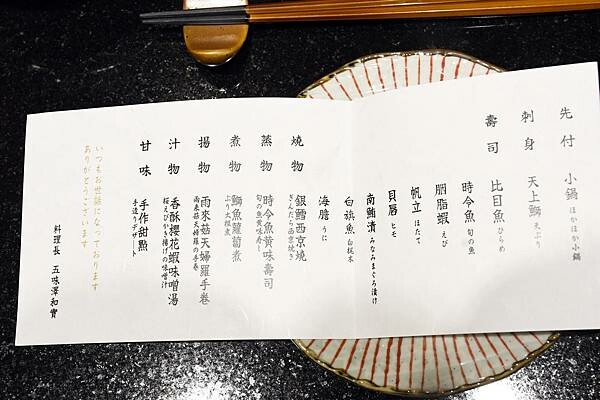 先付 小鍋 ほかほか小鍋
刺身 天上鰤 天ぶり
壽司 比目魚 ひらめ
時令魚 旬の魚
胭脂蝦 えび
帆立 ほたて
貝唇 ヒモ
南鮪漬 みなみまぐろ漬け
白旗魚 白梶木
海膽 うに
燒物 銀鱈西京燒 ぎんだら西京焼き
蒸物 時令魚黄味壽司 旬の魚黄味寿し
煮物 鰤魚蘿蔔煮 ぶり大根煮
揚物 雨來菇天婦羅手巻 雨來菇天婦羅の手巻
汁物 香酥櫻花蝦味噌湯 桜えびかき揚げの味噌汁
甘味 手作甜點 手造りデザート
いつもお世話になっております
ありがとうございます
料理長 五味澤和實